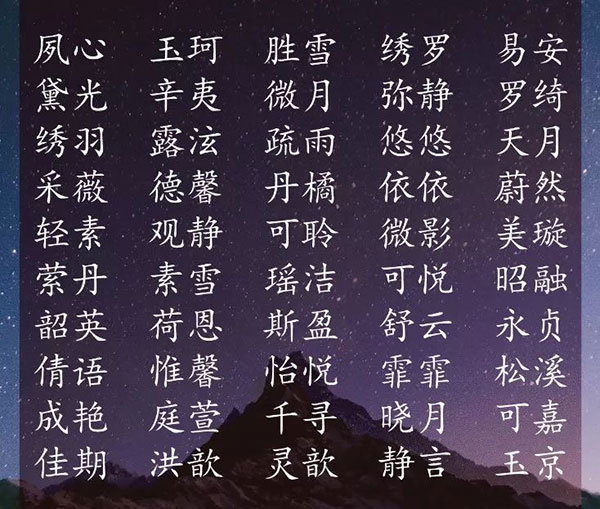 夙心 玉珂 胜雪 绣罗 易安
黛光 辛夷 微月 弥静 罗绮
绣羽 露泫 疏雨 悠悠 天月
采薇 德馨 丹橘 依依 蔚然
轻素 观静 可聆 微影 美璇
萦丹 素雪 瑶洁 可悦 昭融
韶英 荷恩 斯盈 舒云 永贞
倩语 惟馨 怡悦 霏霏 松溪
成艳 庭萱 千寻 晓月 可嘉
佳期 洪歆 灵歆 静言 玉京